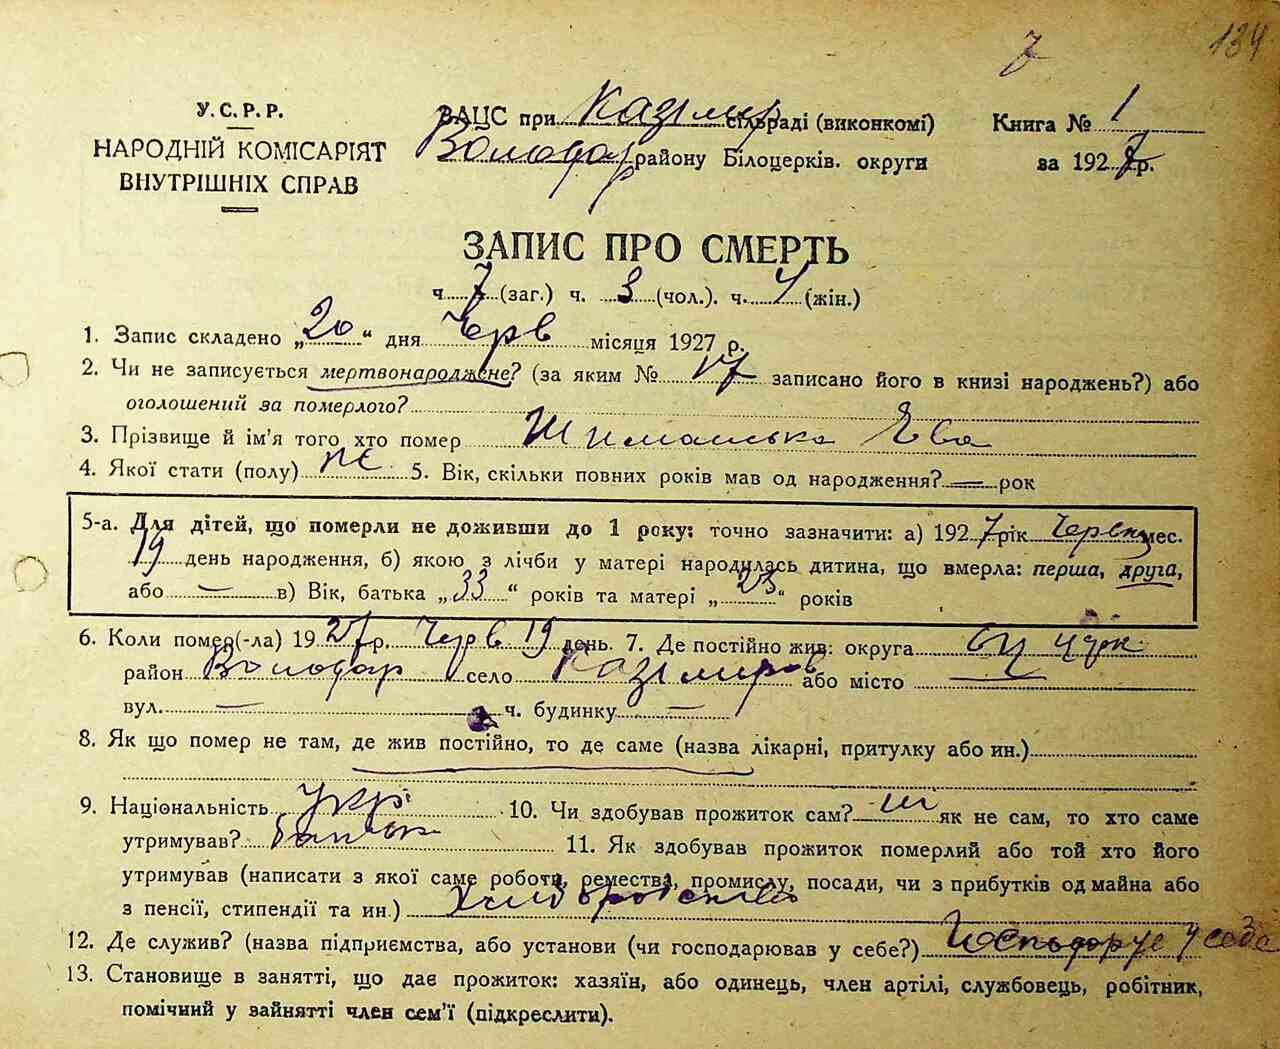 134
7
У.С.Р.Р.
НАРОДНІЙ КОМІСАРІЯТ
ВНУТРІШНІХ СПРАВ
ЗАЦС при Казімир сільраді (виконкомі)
Володар району Білоцерків. округи
Книга № 1
за 1927 р.
ЗАПИС ПРО СМЕРТЬ
ч. 7 (заг.) ч. 3 (чол.). ч. 4 (жін.)
1. Запис складено „20“ дня Черв місяця 1927 р.
2. Чи не записується мертвонароджене? (за яким № 17 записано його в книзі народжень?) або
оголошений за померлого?
3. Прізвище й ім’я того хто помер Шиманська Єва
4. Якої стати (полу) жє 5. Вік, скільки повних років мав од народження? — рок
5-а. Для дітей, що померли не доживши до 1 року: точно зазначити: а) 1927 рік Червн мес.
19 день народження, б) якою з лічби у матері народилась дитина, що вмерла: перша, друга,
або — в) Вік, батька „33“ років та матері „23“ років
6. Коли помер(-ла) 1927 р. Черв 19 день. 7. Де постійно жив: округа Бц
район Володар село Казімиров або місто —
вул. — ч. будинку —
8. Як що помер не там, де жив постійно, то де саме (назва лікарні, притулку або ин.)
9. Національність Укр 10. Чи здобував прожиток сам? ні як не сам, то хто саме
утримував? батьк 11. Як здобував прожиток померлий або той хто його
утримував (написати з якої саме роботи, ремества, промислу, посади, чи з прибутків од майна або
з пенсії, стипендії та ин.) Хліборобство
12. Де служив? (назва підприємства, або установи (чи господарював у себе?) Господарує у себе
13. Становище в занятті, що дає прожиток: хазяїн, або одинець, член артілі, службовець, робітник,
помічний у зайнятті член сем’ї (підкреслити).